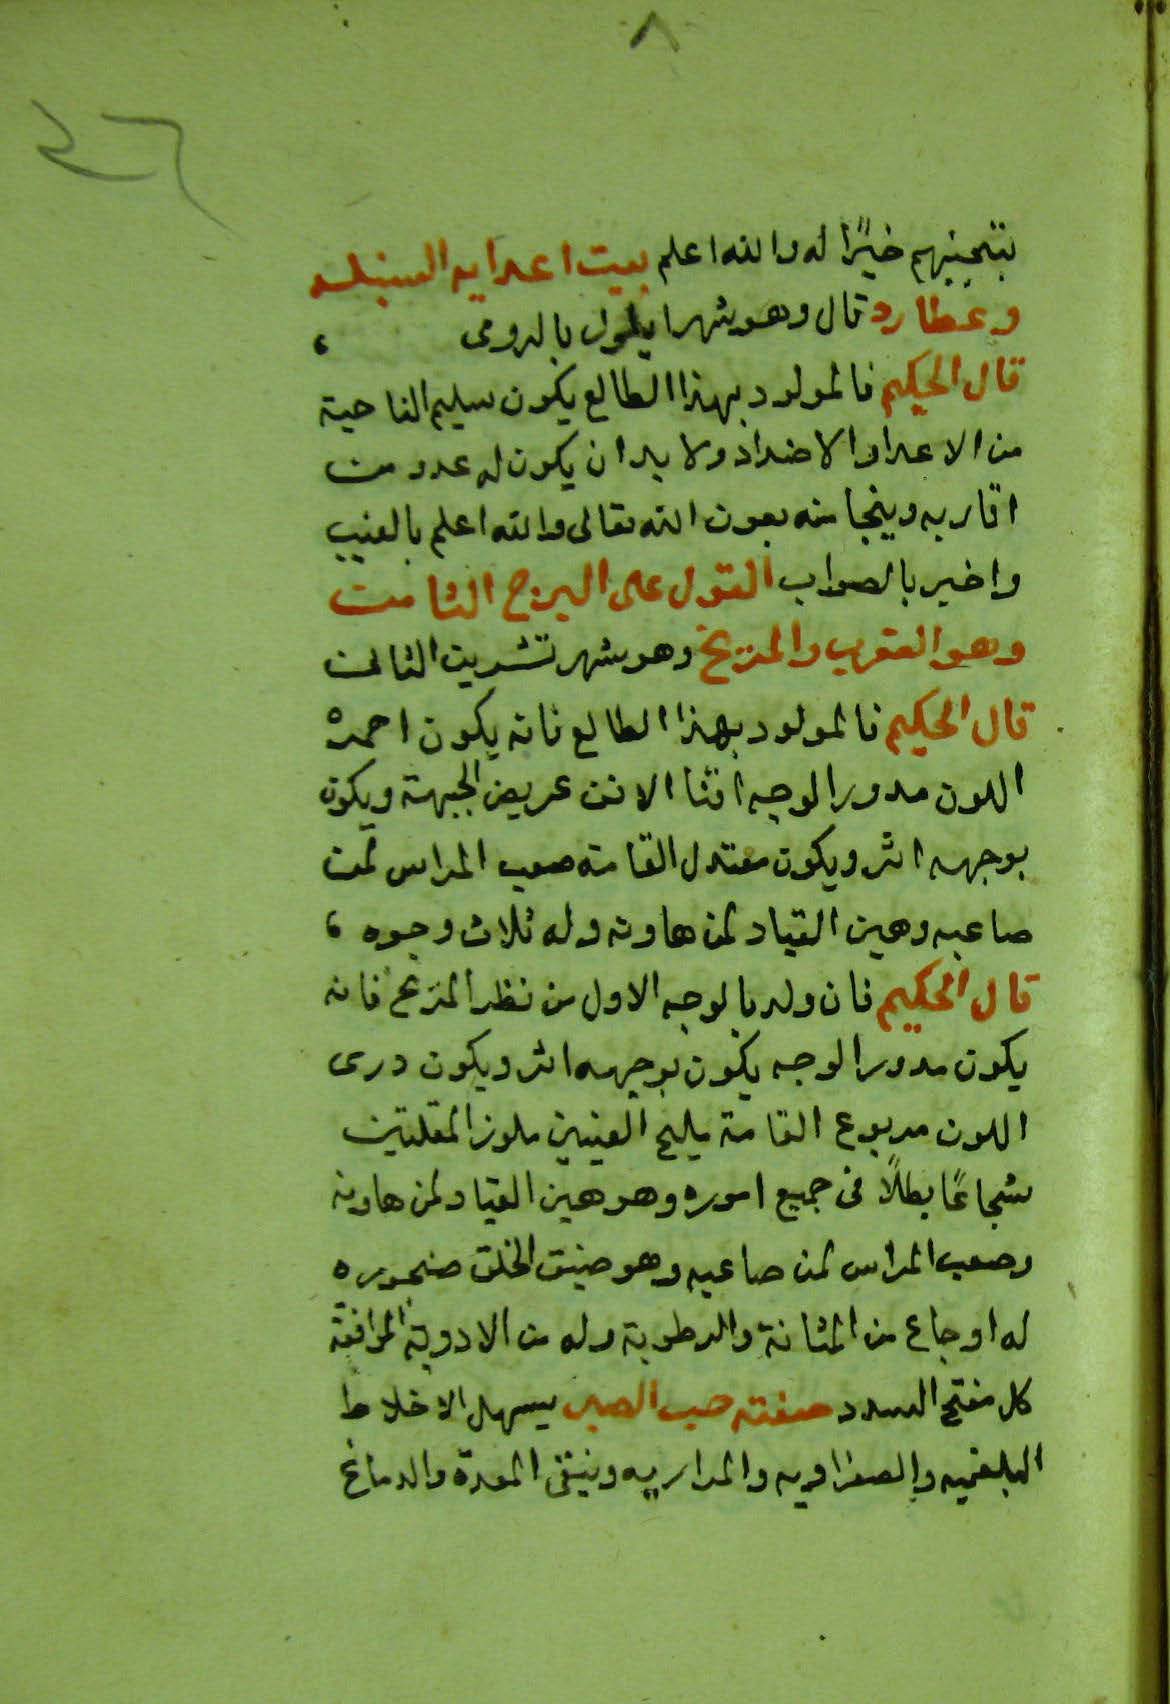 ٨
٤٦
بتجنبهم خيرًا له والله اعلم بيت اعدايه السنبله
وعطارد قال وهو شهر ايلول بالرومى ،
قال الحكيم فالمولود بهذا الطالع يكون سليم الناحية
من الاعدا والاضداد ولا بد ان يكون له عدو من
اقاربه وينجا منه بعون الله تعالى والله اعلم بالغيب
واخبر بالصواب القول على البرج الثامن
وهو العقرب والمريخ وهو شهر تشرين الثانى
قال الحكيم فالمولود بهذا الطالع فانه يكون احمر
اللون مدور الوجه اقنا الانف عريض الجبهة ويكون
بوجهه اثر ويكون معتدل القامه صعب المراس لمن
صاعبه وهين القياد لمن هاونه وله ثلاث وجوه ،
قال الحكيم فان ولد بالوجه الاول من نظر المريخ فانه
يكون مدور الوجه يكون بوجهه اثر ويكون درى
اللون مربوع القامة مليح العينين ملوز المقلتين
شجاعًا بطلًا فى جميع اموره وهو هين القياد لمن هاونه
وصعب المراس لمن صاعبه وهو ضيق الخلق ضجوره
له اوجاع من المثانة والرطوبة وله من الادوية الموافقة
كل مفتح السدد صفته حب الصبر يسهل الاخلاط
البلغميه والصفراويه والمراريه وينقى المعدة والدماغ